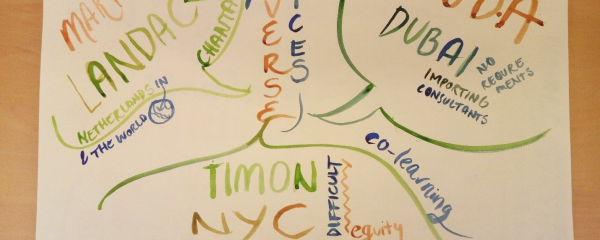 LANDAC
CHANTA
NETHERLANDS IN
& THE WORLD
VERSE
ICES
DUBAI
NO
REQUIRE
MENTS
IMPORTING
CONSULTANTS
co-learning
TIMON
NYC
DIFFICULT
equity